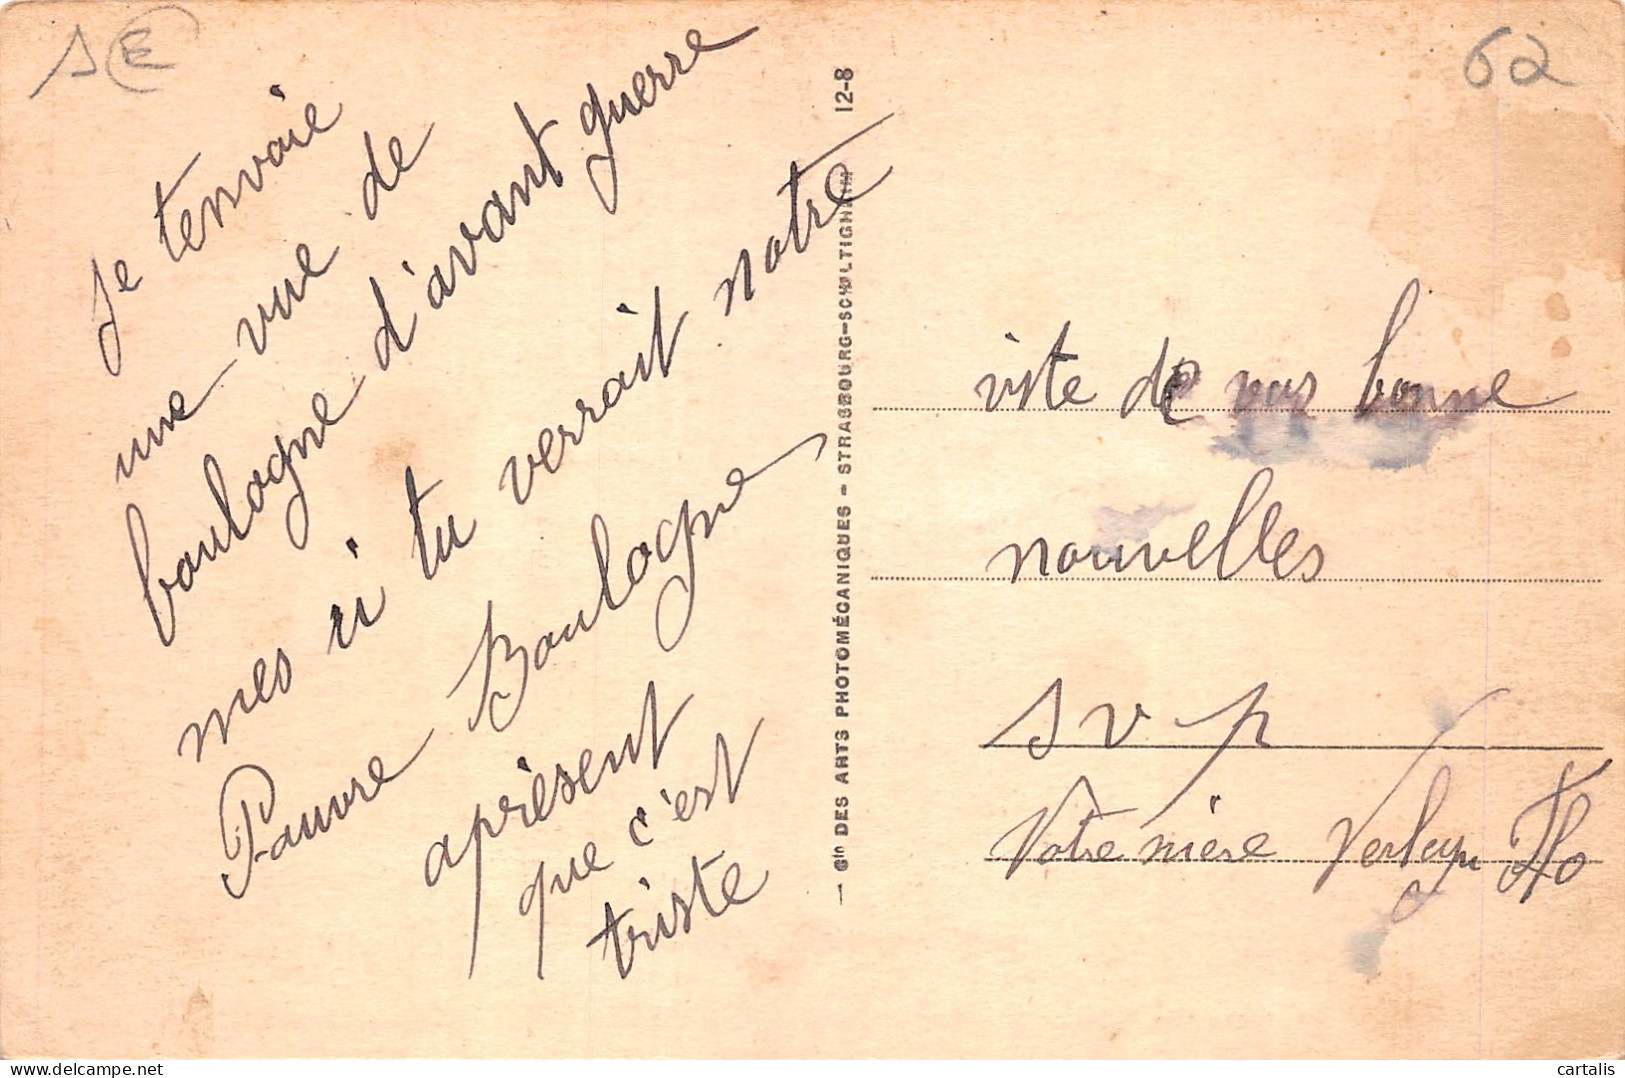 SE
62
Je tenvoie
une vue de
boulogne d'avant guerre
mes si tu verrait notre
Pauvre Boulogne
aprèsent
que c'est
triste
— Sté DES ARTS PHOTOMÉCANIQUES - STRASBOURG-SCHILTIGHEIM 12-8
viste de vos bonne
nouvelles
S V P
Votre nière
cartalis